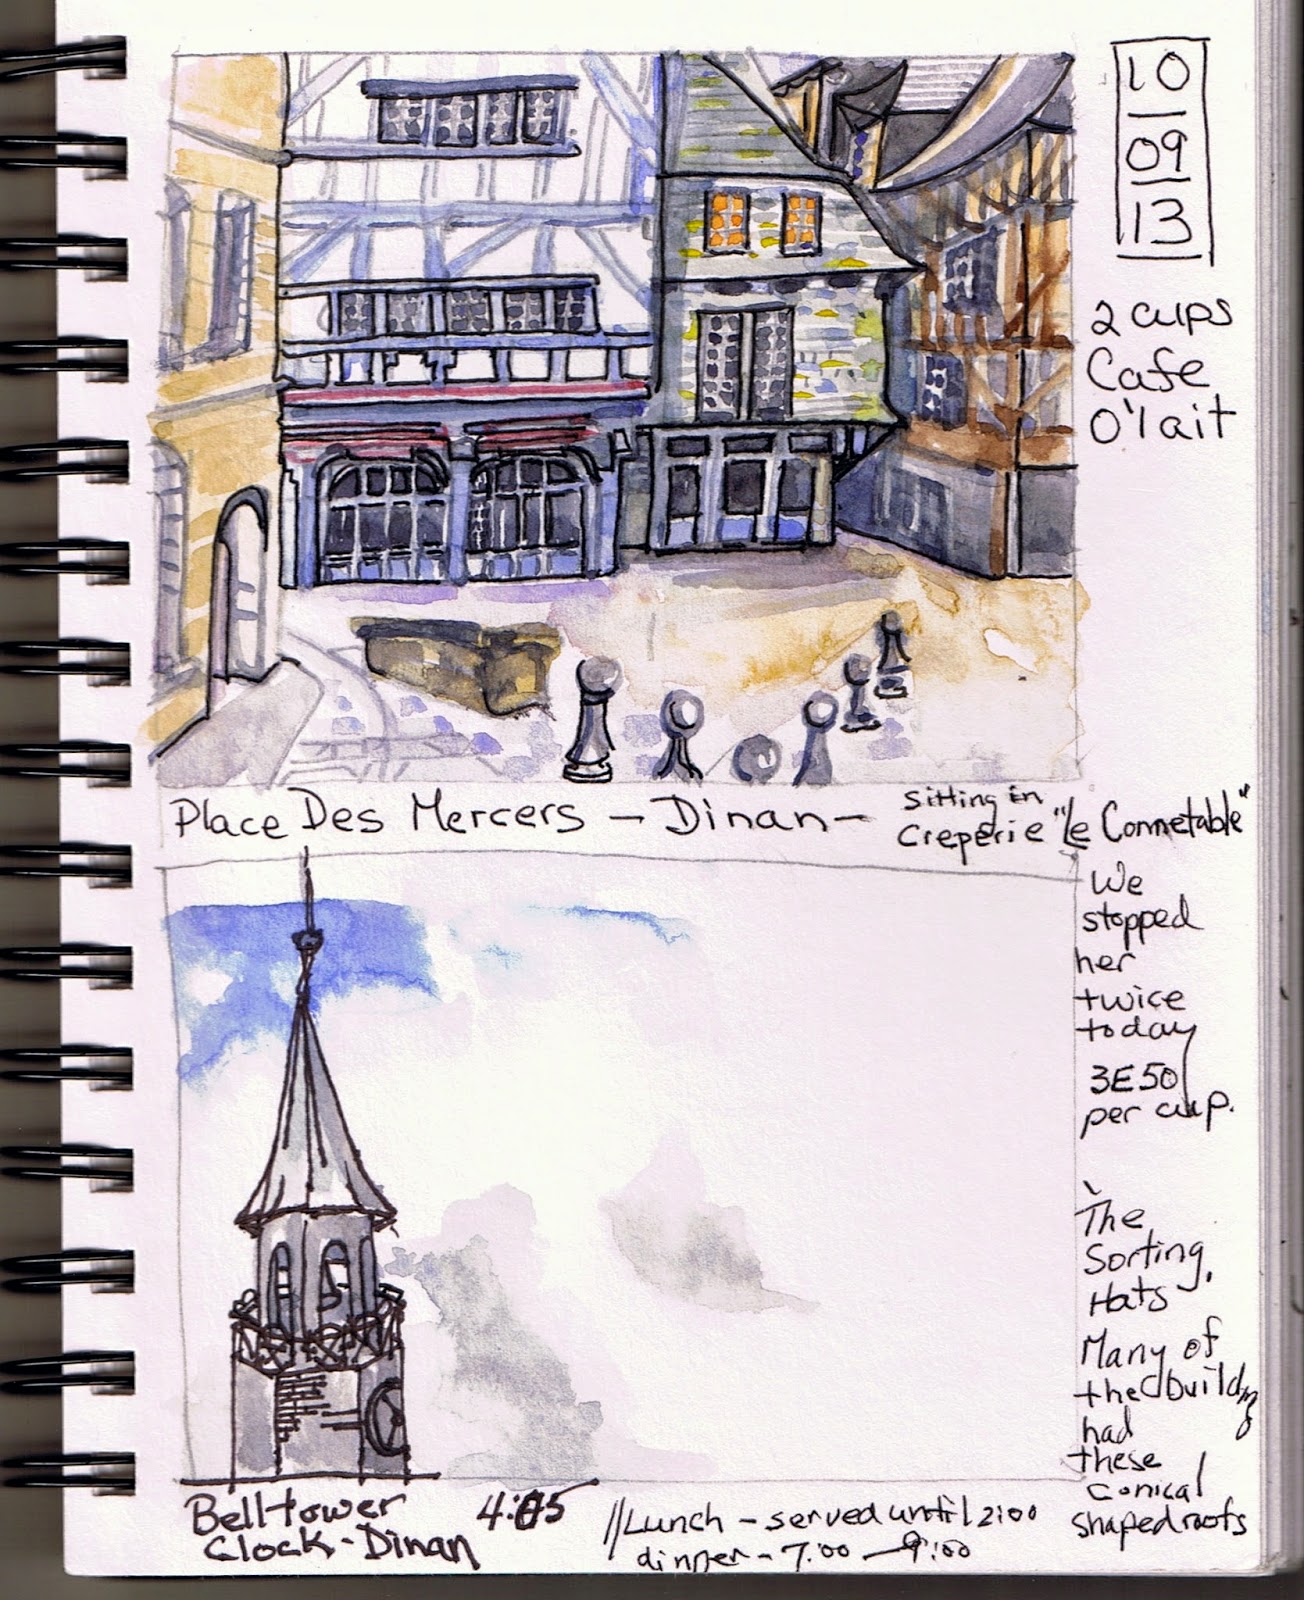 10
09
13
2 cups
Cafe
O'lait
Place Des Mercers - Dinan -
sitting in
Creperie "Le Connetable"
We
stopped
her
twice
today
3E50
per cup.
The
Sorting
Hats
Many of
the buildng
had
these
conical
shaped roofs
Belltower
Clock - Dinan
4:05
//Lunch - served until 2:00
dinner - 7:00 - 9:00